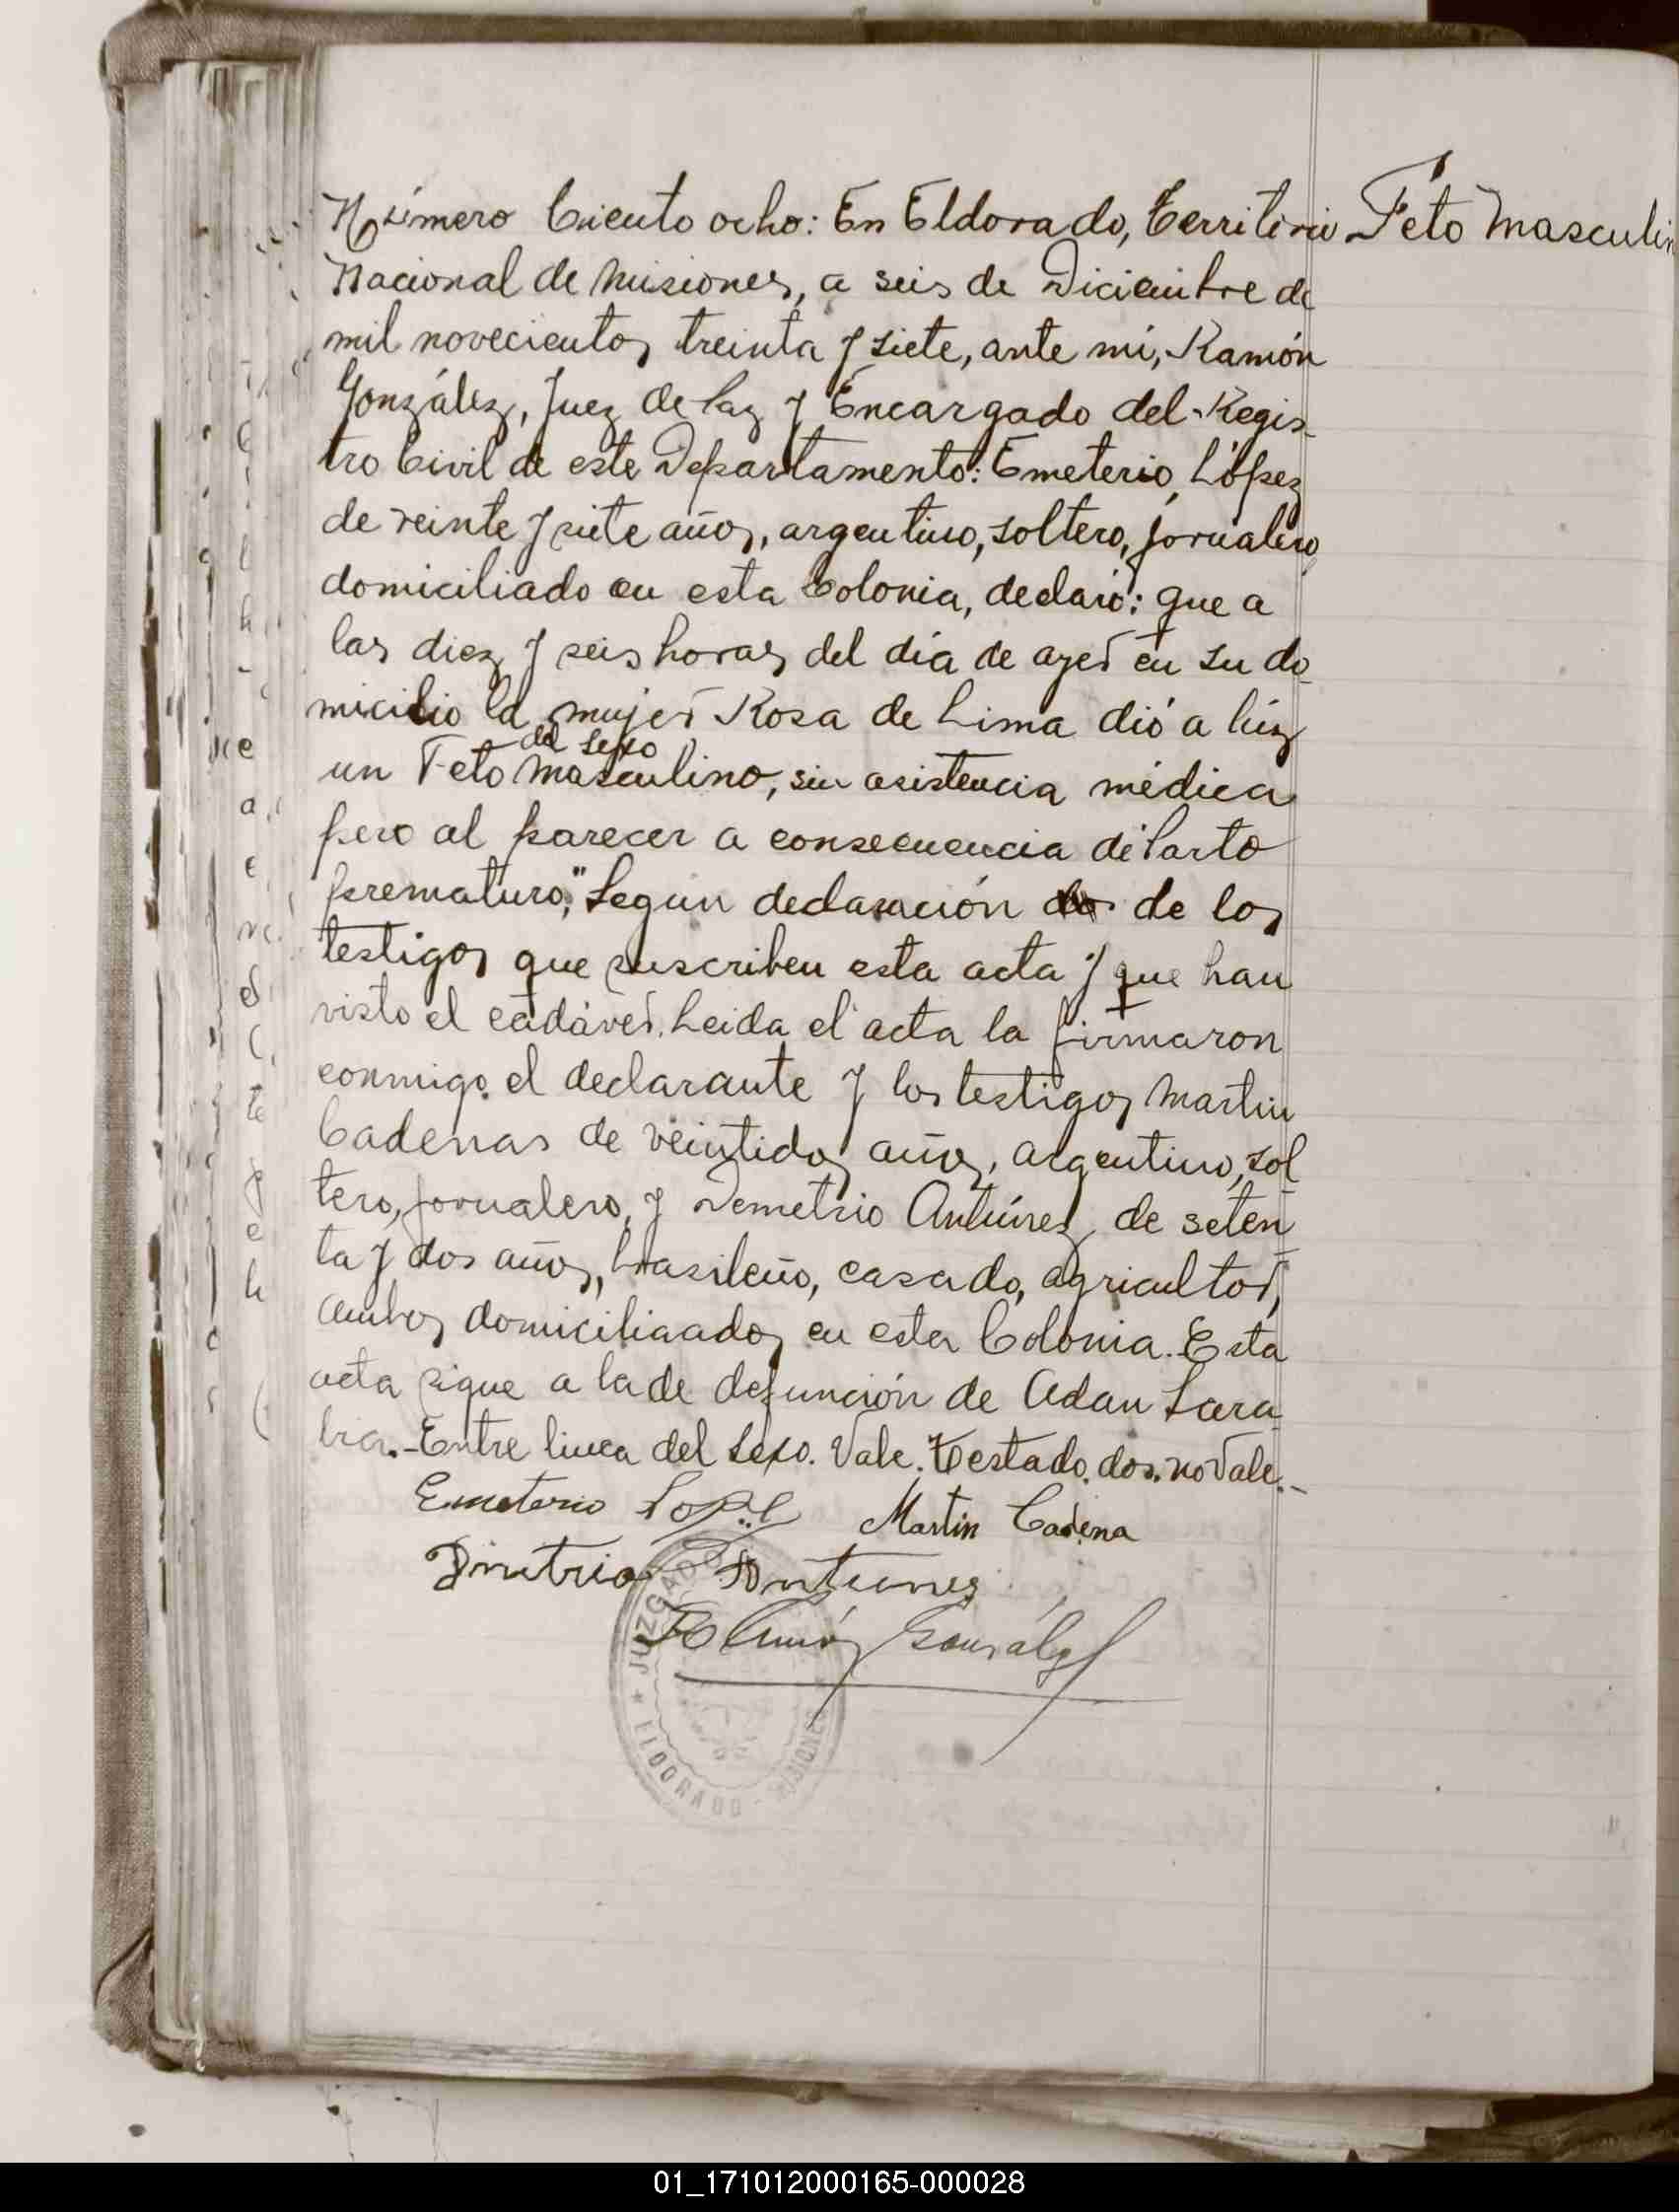 Número Ciento ocho: En Eldorado, Territorio
Feto Masculin
Nacional de Misiones, a seis de Diciembre de
mil novecientos treinta y siete, ante mí, Ramón
González, Juez de Paz y Encargado del Regis-
tro Civil de este Departamento: Emeterio López
de veinte y siete años, argentino, soltero, jornalero,
domiciliado en esta Colonia, declaró: que a
las diez y seis horas del día de ayer en su do-
micilio la mujer Rosa de Lima dió a lúz
del sexo
un Feto Masculino, sin asistencia médica
pero al parecer a consecuencia de "Parto
prematuro," Segun declaración de los
testigos que suscriben esta acta y que han
visto el cadáver. Leida el acta la firmaron
conmigo el declarante y los testigos Martin
Cadenas de veintidos años, argentino, sol
tero, jornalero, y Demetrio Antúnez, de seten
ta y dos años, brasileño, casado, agricultor,
ambos domiciliaados en esta Colonia. Esta
acta sigue a la de defunción de Adan Sara
bia.- Entre linea del sexo. Vale. Testado. dos. no Vale.-
Emeterio Lopez Martin Cadena
Dmetrio Antunes
Ramón González
JUZGADO
★ ELDORADO - MISIONES
01_171012000165-000028